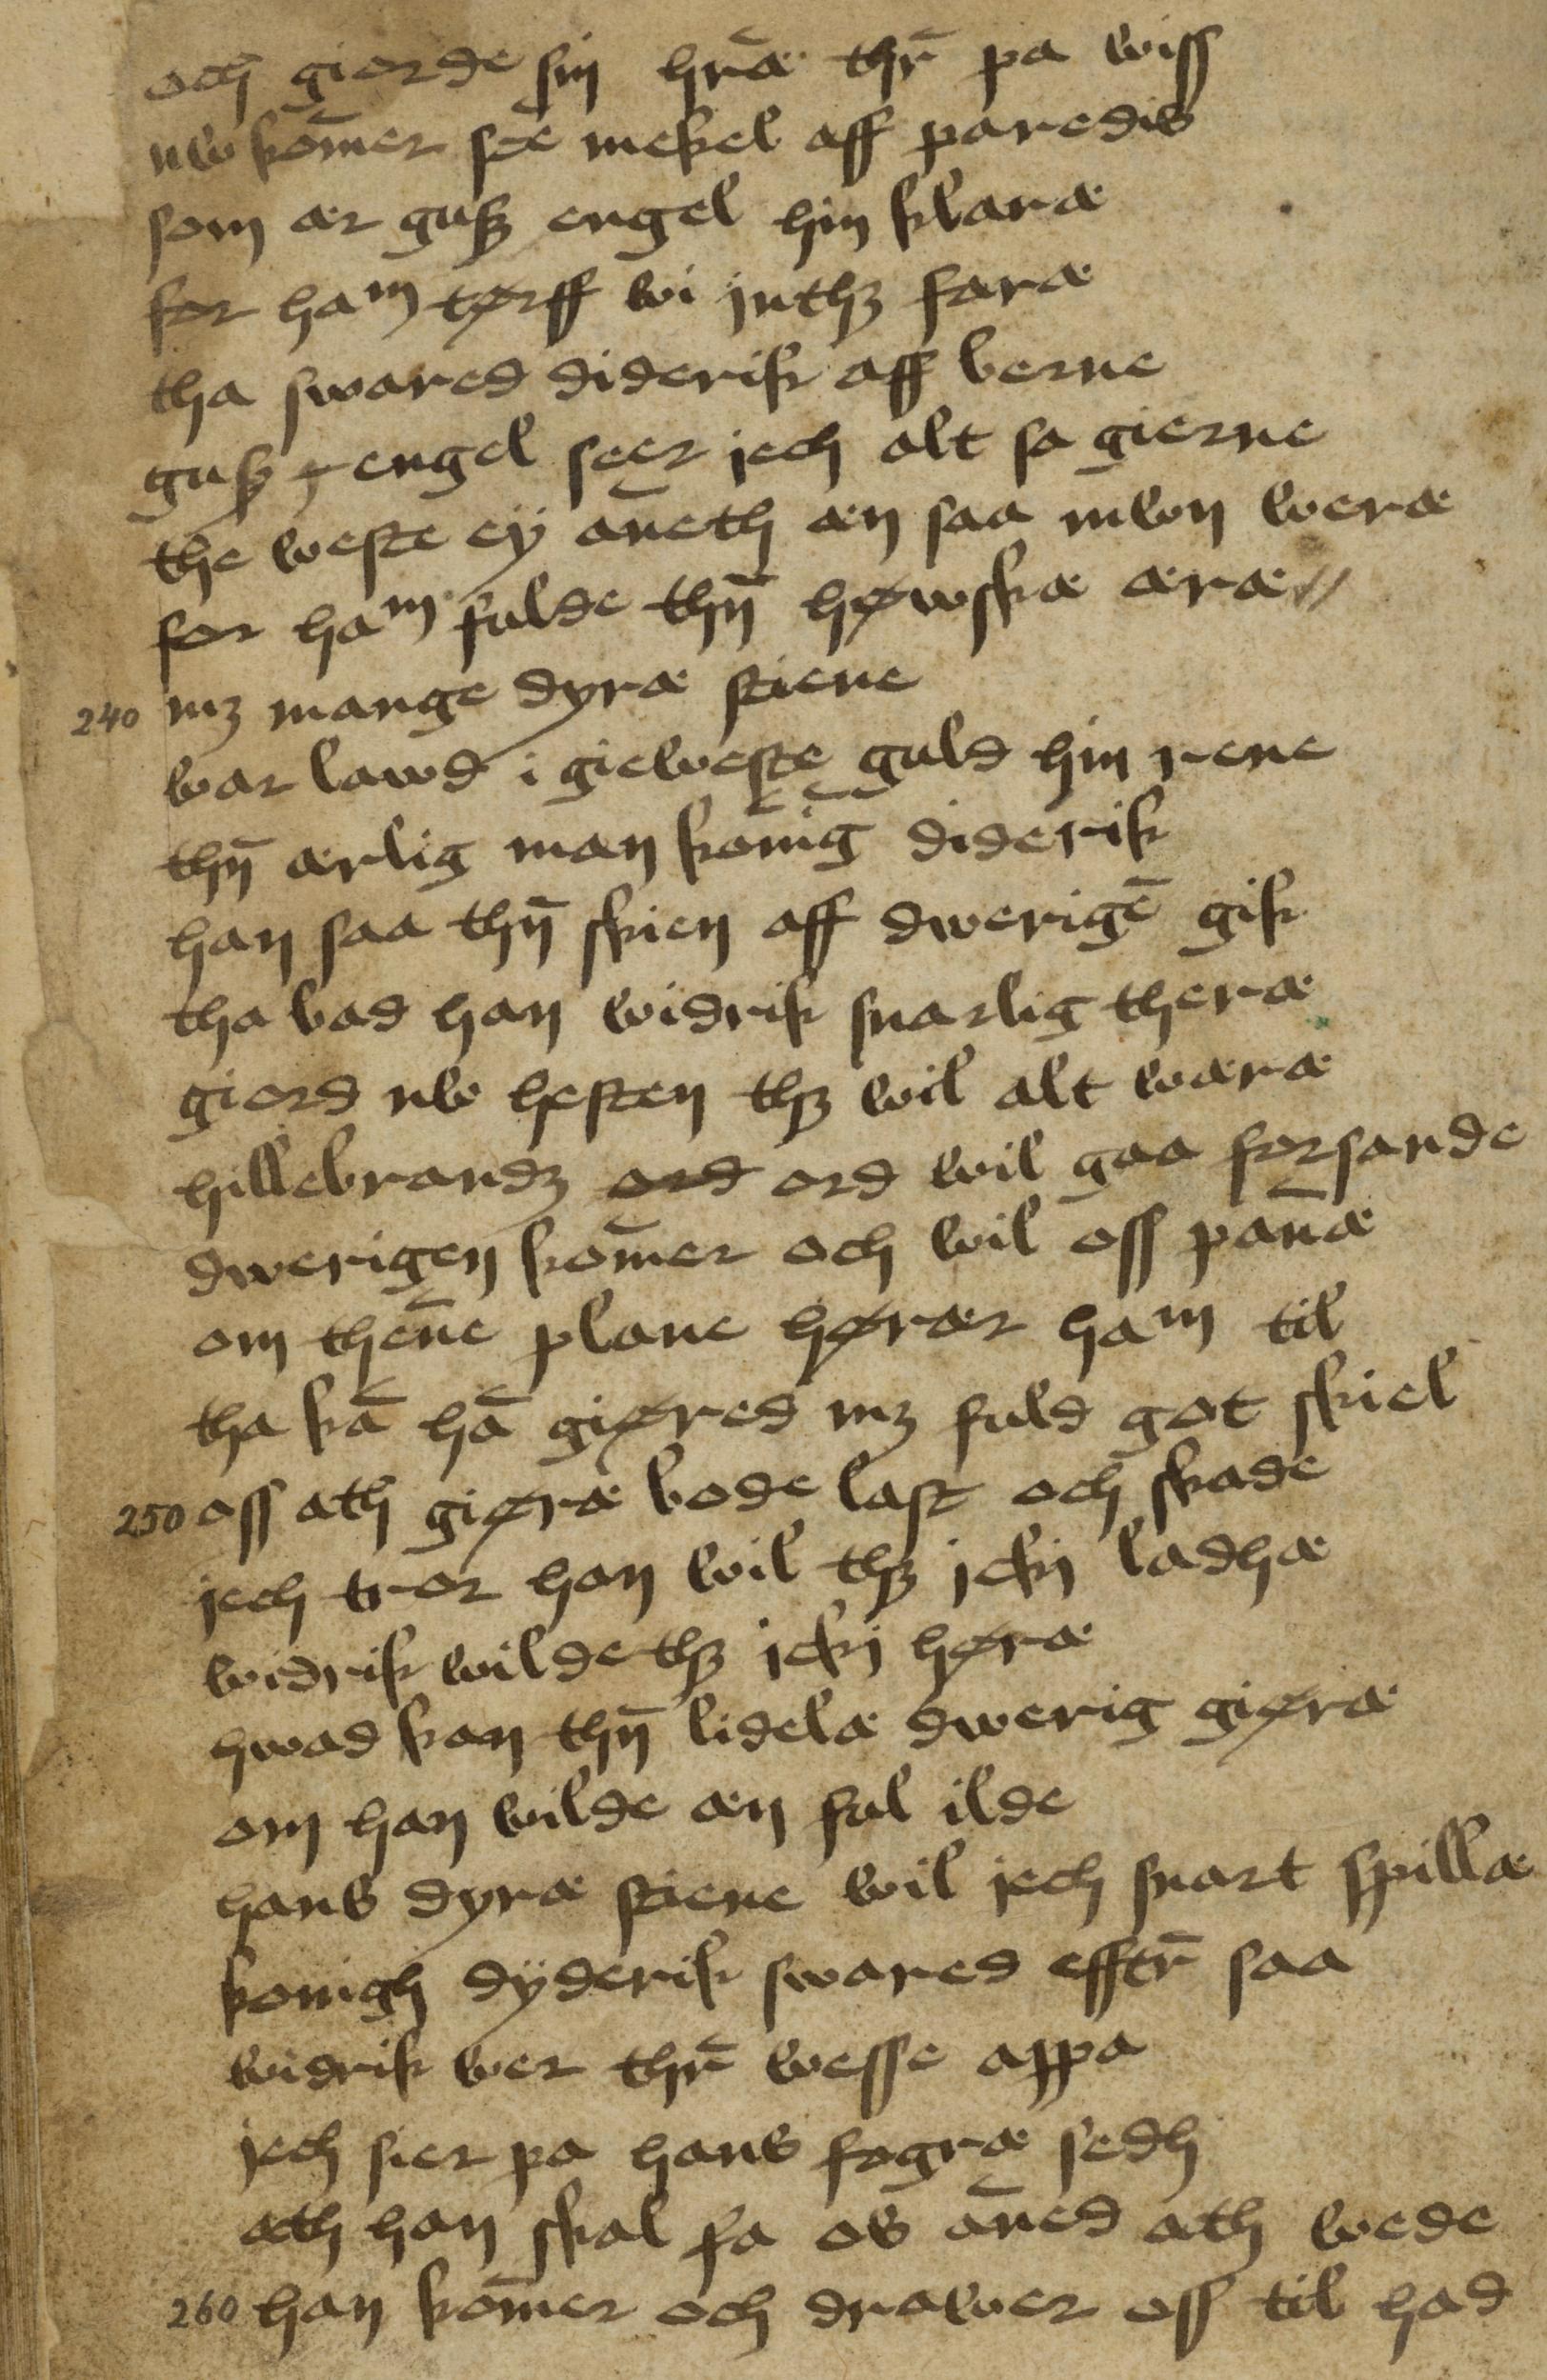 och giorde sin hr̄æ thr̄ pa wiss
nw kom̄er sc̄e mekel aff paredis
som ær gudz engel hin klaræ
for ham tørff wi inthz faræ
tha swared diderik aff berne
gudz engel seer iech alt so gierne
the weste eÿ an̄eth æn saa mwn weræ
for ham fulde thn̄ høwskæ æræ //
240 mz mange dyræ stiene
war lawd i gieweste guld hin rene
thn̄ ærlig man kon̄iḡ diderik
han saa thn̄ skien aff dwerigē gik
tha bad han widrik snarlig theræ
giord nw hesten thz wil alt wæræ
hillebrandz ord ord wil gaa forsande
dwerigen kom̄er och wil oss pan̄æ
om then̄e plane hørær ham til
tha kā hā giøred mz fuld got skiel
250 oss ath giøræ bode last och skade
iech tror han wil thz icki ladhæ
widrik wilde thz icki høræ
hwad kan thn̄ lidelæ dwerig giøræ
om han wilde æn ful ilde
hans dyræ stiene wil iech snart spillæ
konigh dÿderik swared efftr̄ saa
widrik wer thr̄ wesse appa
iech sier pa hans fogræ sedh
ath han skal fa os an̄ed ath wede
260 han kom̄er och drawer oss til had